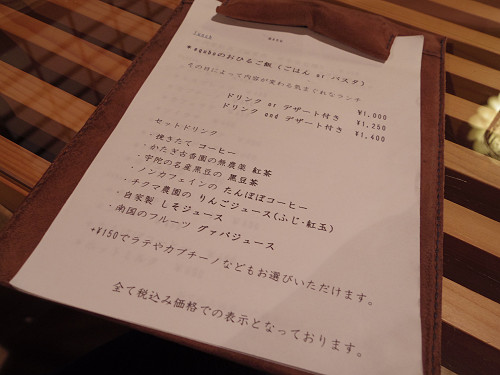 Lunch MENU
*aguhuのおひるご飯(ごはん or パスタ)
その日によって内容が変わる気まぐれなランチ
¥1,000
ドリンク or デザート付き ¥1,250
ドリンク and デザート付き ¥1,400
セットドリンク
・焼きたて コーヒー
・かたぎ古香園の無農薬 紅茶
・宇陀の名産黒豆の 黒豆茶
・ノンカフェインの たんぽぽコーヒー
・チクマ農園の りんごジュース(ふじ・紅玉)
・自家製 しそジュース
・南国のフルーツ グァバジュース
+¥150でラテやカプチーノなどもお選びいただけます。
全て税込み価格での表示となっております。